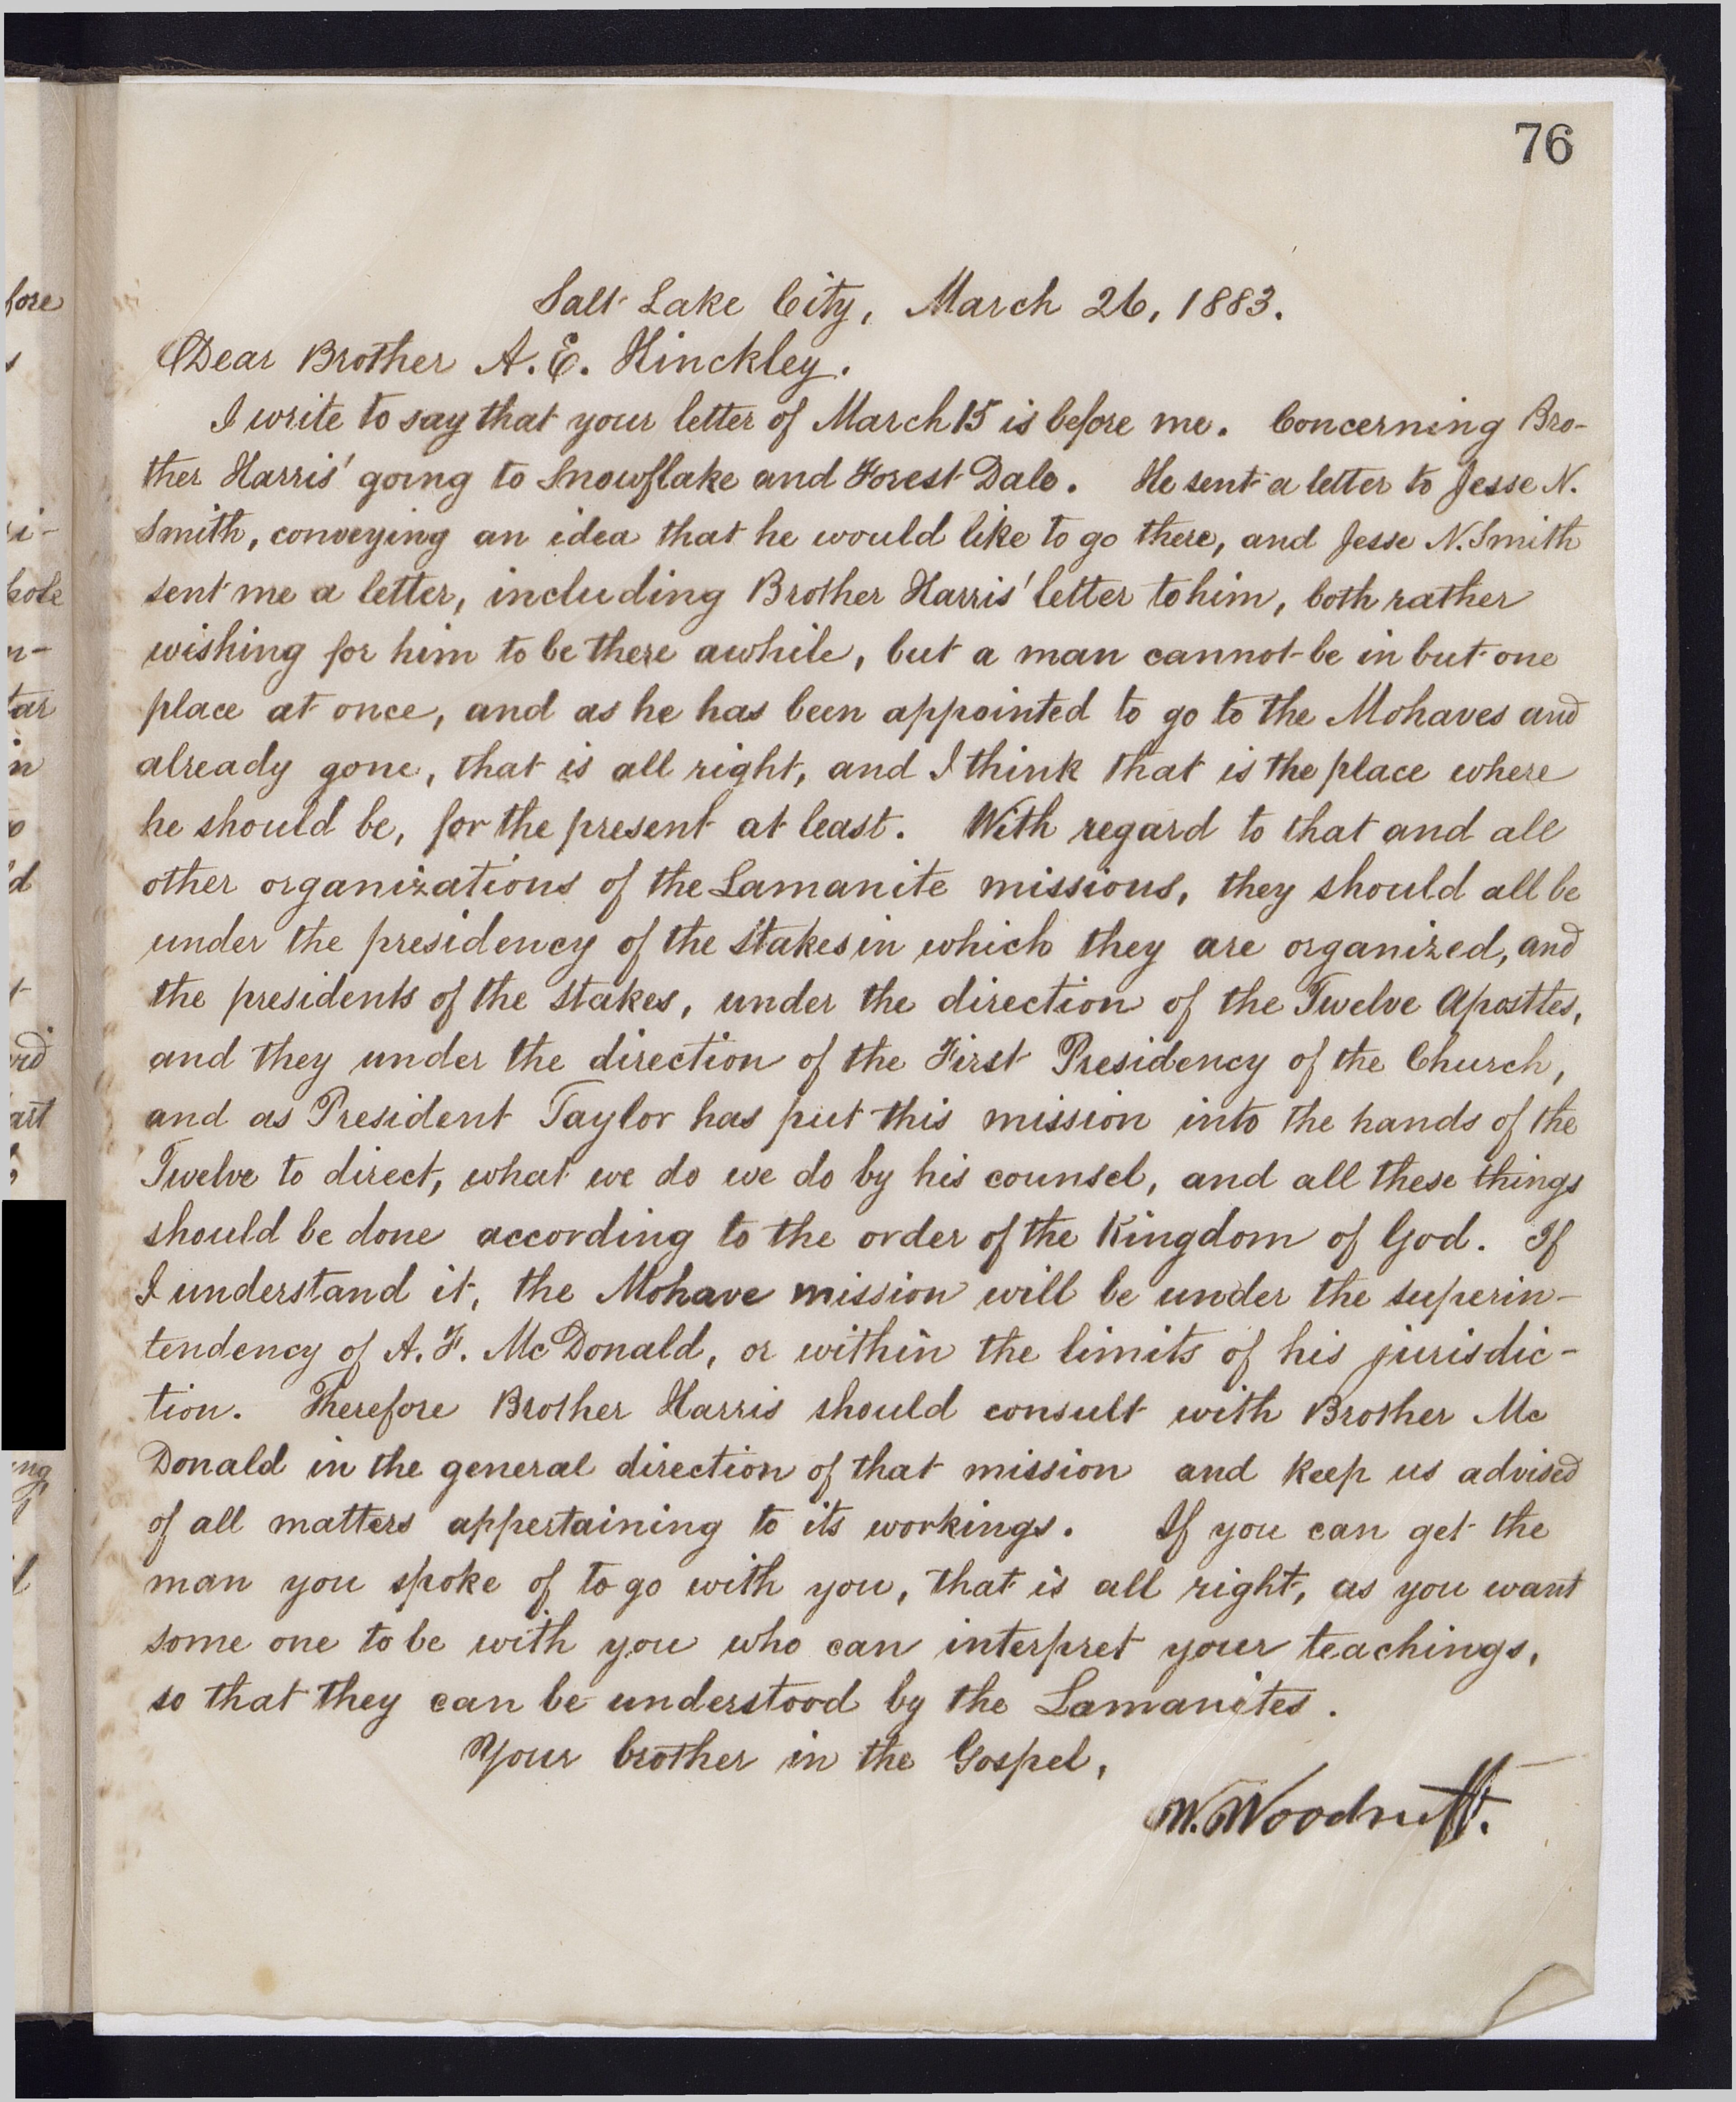 76
Salt Lake City, March 26, 1883.
Dear Brother A. E. Hinckley.
I write to say that your letter of March 15 is before me. Concerning Bro-
ther Harris' going to Snowflake and Forest Dale. He sent a letter to Jesse N.
Smith, conveying an idea that he would like to go there, and Jesse N. Smith
sent me a letter, including Brother Harris' letter to him, both rather
wishing for him to be there awhile, but a man cannot be in but one
place at once, and as he has been appointed to go to the Mohaves and
already gone, that is all right, and I think that is the place where
he should be, for the present at least. With regard to that and all
other organizations of the Lamanite missions, they should all be
under the presidency of the Stakes in which they are organized, and
the presidents of the Stakes, under the direction of the Twelve Apostles,
and they under the direction of the First Presidency of the Church,
and as President Taylor has put this mission into the hands of the
Twelve to direct, what we do we do by his counsel, and all these things
should be done according to the order of the Kingdom of God. If
I understand it, the Mohave mission will be under the superin-
tendency of A. F. McDonald, or within the limits of his jurisdic-
tion. Therefore Brother Harris should consult with Brother Mc
Donald in the general direction of that mission and keep us advised
of all matters appertaining to its workings. If you can get the
man you spoke of to go with you, that is all right, as you want
some one to be with you who can interpret your teachings,
so that they can be understood by the Lamanites.
Your brother in the Gospel,
W. Woodruff.